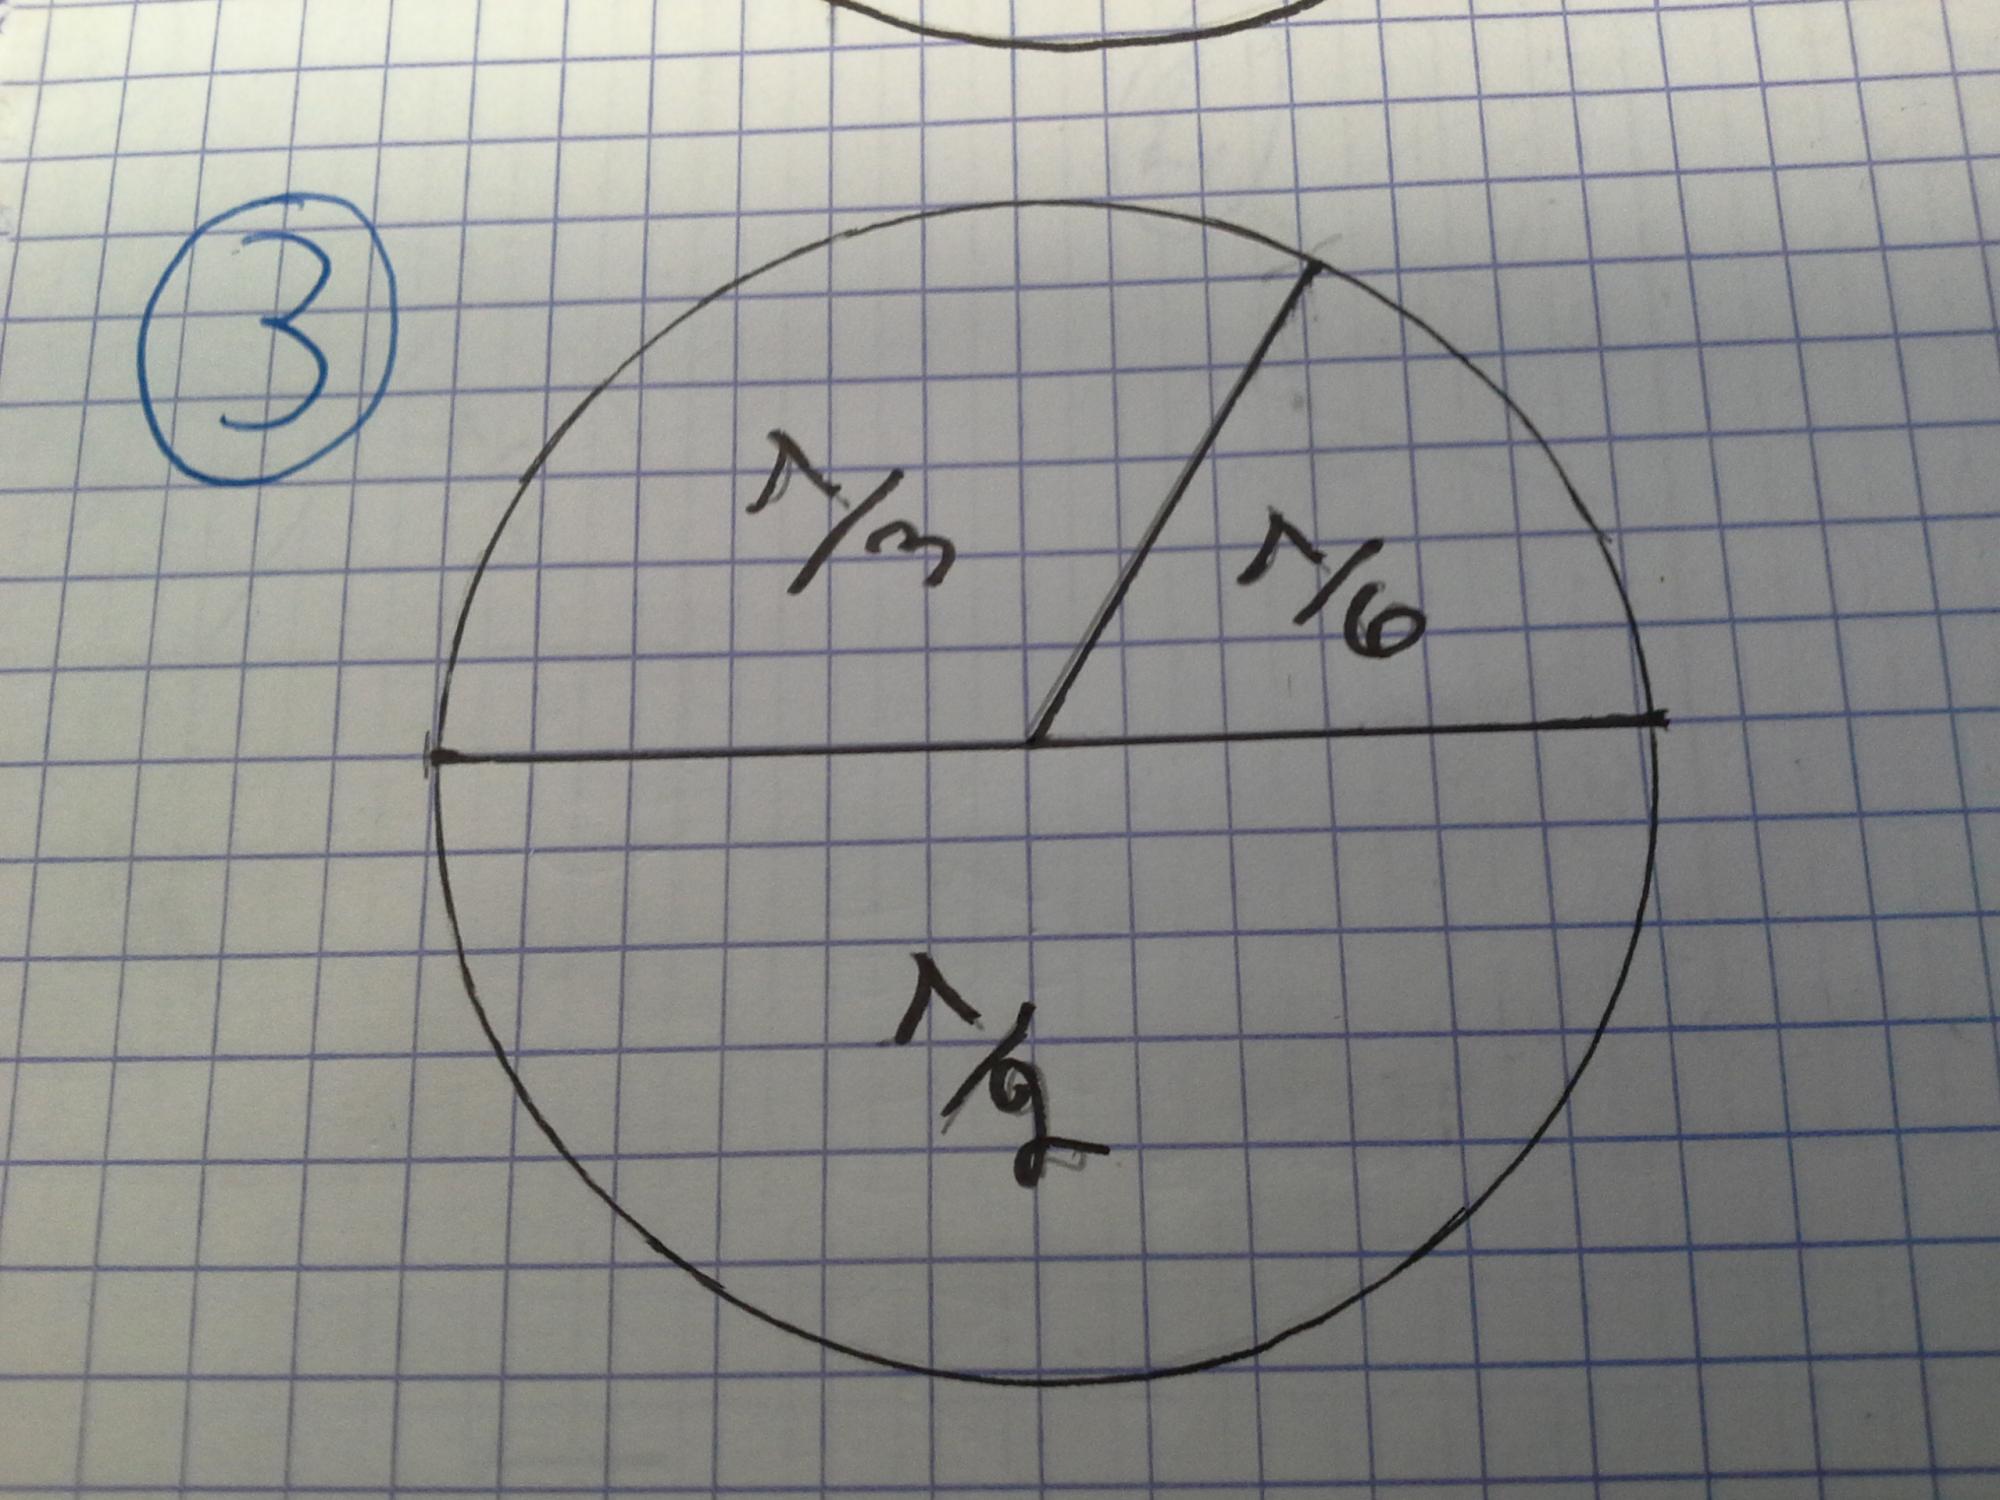 3
1/3
1/6
1/2